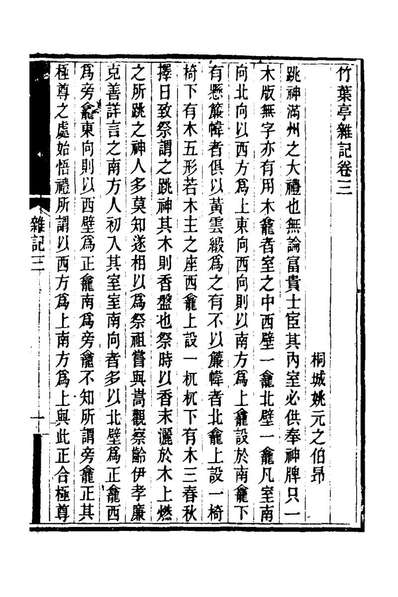 竹葉亭雜記卷三
桐城姚元之伯昂
跳神滿州之大禮也無論富貴士宦其內室必供奉神牌只一
木版無字亦有用木龕者室之中西壁一龕北壁一龕凡室南
向北向以西方爲上東向西向則以南方爲上龕設於南龕下
有懸簾幃者俱以黃雲緞爲之有不以簾幃者北龕上設一椅
椅下有木五形若木主之座西龕上設一杌杌下有木三春秋
擇日致祭謂之跳神其木則香盤也祭時以香末灑於木上燃
之所跳之神人多莫知遂相以爲祭祖嘗與嵩觀察齡伊孝廉
克善詳言之南方人初入其室室南向者多以北壁爲正龕西
爲旁龕東向則以西壁爲正龕南爲旁龕不知所謂旁龕正其
極尊之處始悟禮所謂以西方爲上南方爲上與此正合極尊
雜記三
一